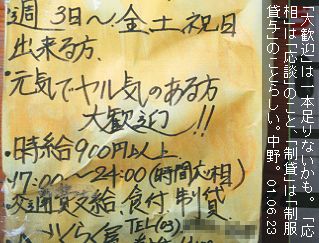 週3日〜金、土、祝日
出来る方、
・元気でヤル気のある方
大歓迎!!
・時給900円以上
17:00〜24:00(時間応相)
交通費支給、食付 制貸
TEL(03)
「大歓迎」は一本足りないかも。「応
相」は「応談」のこと、「制貸」は「制服
貸与」のことらしい。中野。 01.06.23